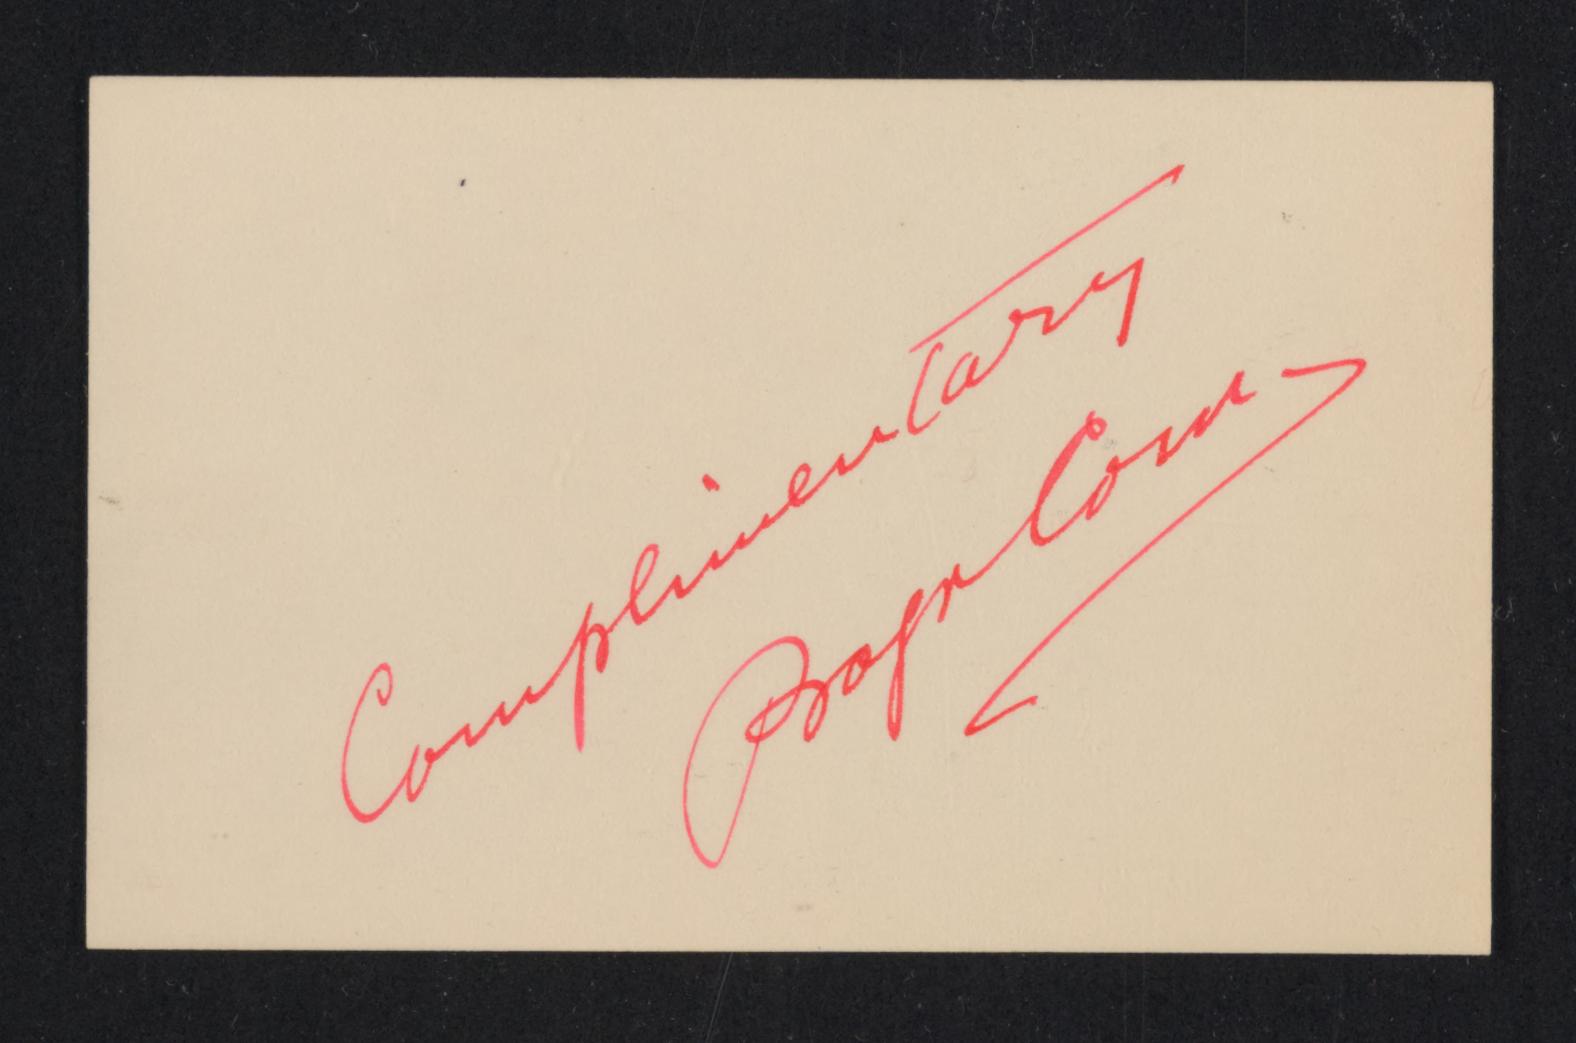 Complimentary
Progr Com